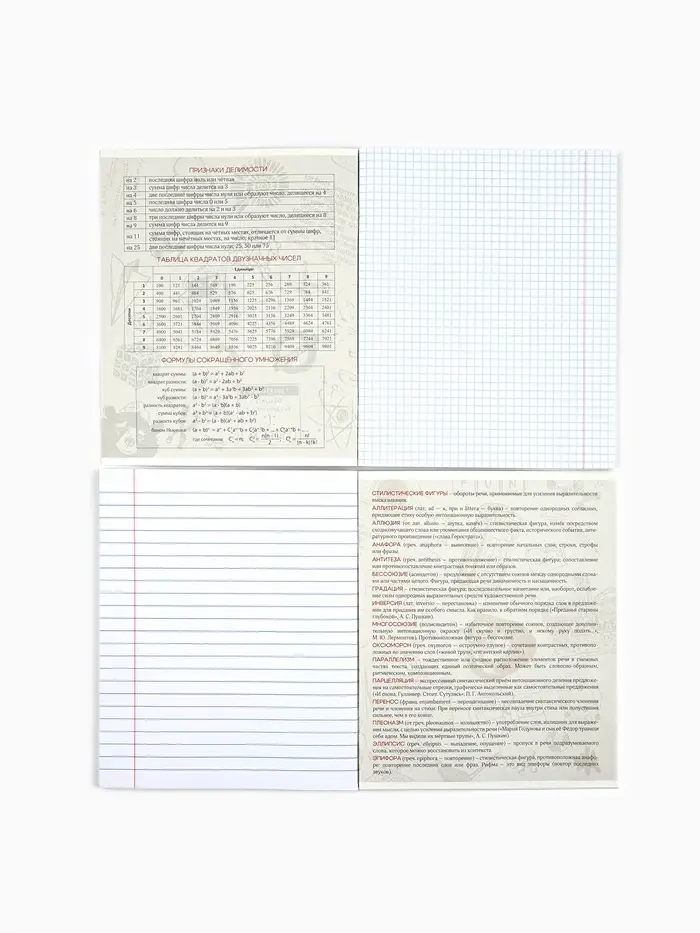 ПРИЗНАКИ ДЕЛИМОСТИ
на 2 последняя цифра ноль или чётная
на 3 сумма цифр числа делится на 3
на 4 две последние цифры числа нули или образуют число, делящееся на 4
на 5 последняя цифра числа 0 или 5
на 6 число должно делиться на 2 и на 3
на 8 три последние цифры числа нули или образуют число, делящееся на 8
на 9 сумма цифр числа делится на 9
на 11 сумма цифр, стоящих на чётных местах, отличается от суммы цифр,
стоящих на нечётных местах, на число, кратное 11
на 25 две последние цифры числа нули, 25, 50 или 75
ТАБЛИЦА КВАДРАТОВ ДВУЗНАЧНЫХ ЧИСЕЛ
Единицы
Десятки
0 1 2 3 4 5 6 7 8 9
1 100 121 144 169 196 225 256 289 324 361
2 400 441 484 529 576 625 676 729 784 841
3 900 961 1024 1089 1156 1225 1296 1369 1444 1521
4 1600 1681 1764 1849 1936 2025 2116 2209 2304 2401
5 2500 2601 2704 2809 2916 3025 3136 3249 3364 3481
6 3600 3721 3844 3969 4096 4225 4356 4489 4624 4761
7 4900 5041 5184 5329 5476 5625 5776 5929 6084 6241
8 6400 6561 6724 6889 7056 7225 7396 7569 7744 7921
9 8100 8281 8464 8649 8836 9025 9216 9409 9604 9801
ФОРМУЛЫ СОКРАЩЁННОГО УМНОЖЕНИЯ
квадрат суммы: (a + b)² = a² + 2ab + b²
квадрат разности: (a - b)² = a² - 2ab + b²
куб суммы: (a + b)³ = a³ + 3a²b + 3ab² + b³
куб разности: (a - b)³ = a³ - 3a²b + 3ab² - b³
разность квадратов: a² - b² = (a - b)(a + b)
сумма кубов: a³ + b³ = (a + b)(a² - ab + b²)
разность кубов: a³ - b³ = (a - b)(a² + ab + b²)
бином Ньютона:
где сочетания
СТИЛИСТИЧЕСКИЕ ФИГУРЫ – обороты речи, применяемые для усиления выразительности
высказывания.
АЛЛИТЕРАЦИЯ (лат. ad – к, при и littera – буква) – повторение однородных согласных,
придающее стиху особую интонационную выразительность.
АЛЛЮЗИЯ (от лат. allusio – шутка, намёк) – стилистическая фигура, намёк посредством
сходнозвучащего слова или упоминания общеизвестного факта, исторического события, лите-
ратурного произведения («слава Герострата»).
АНАФОРА (греч. anaphora – вынесение) – повторение начальных слов, строки, строфы
или фразы.
АНТИТЕЗА (греч. antithesis – противоположение) – стилистическая фигура; сопоставление
или противопоставление контрастных понятий или образов.
БЕССОЮЗИЕ (асиндетон) – предложение с отсутствием союзов между однородными слова-
ми или частями целого. Фигура, придающая речи динамичность и насыщенность.
ГРАДАЦИЯ – стилистическая фигура, последовательное нагнетание или, наоборот, ослабле-
ние силы однородных выразительных средств художественной речи.
ИНВЕРСИЯ (лат. inversio – перестановка) – изменение обычного порядка слов в предложе-
нии для придания им особого смысла. Как правило, в обратном порядке («Преданья старины
глубокой», А. С. Пушкин).
МНОГОСОЮЗИЕ (полисиндетон) – избыточное повторение союзов, создающее дополни-
тельную интонационную окраску («И скучно и грустно, и некому руку подать...»,
М. Ю. Лермонтов). Противоположная фигура – бессоюзие.
ОКСЮМОРОН (греч. oxymoron – остроумно-глупое) – сочетание контрастных, противопо-
ложных по значению слов («живой труп», «гигантский карлик»).
ПАРАЛЛЕЛИЗМ – тождественное или сходное расположение элементов речи в смежных
частях текста, создающих единый поэтический образ. Может быть словесно-образным,
ритмическим, композиционным.
ПАРЦЕЛЛЯЦИЯ – экспрессивный синтаксический приём интонационного деления предложе-
ния на самостоятельные отрезки, графически выделенные как самостоятельные предложения
(«И снова. Гулливер. Стоит. Сутулясь», П. Г. Антокольский).
ПЕРЕНОС (франц. enjambement – перешагивание) – несовпадение синтаксического членения
речи и членения на стихи. При переносе синтаксическая пауза внутри стиха или полустишия
сильнее, чем в его конце.
ПЛЕОНАЗМ (от греч. pleonasmos – излишество) – употребление слов, излишних для выраже-
ния мысли, с целью усиления выразительности речи («Мария Годунова и сын её Фёдор травили
себя ядом. Мы видели их мёртвые трупы», А. С. Пушкин).
ЭЛЛИПСИС (греч. elleipsis – выпадение, опущение) – пропуск в речи подразумеваемого
слова, которое можно восстановить из контекста.
ЭПИФОРА (греч. epiphora – повторение) – стилистическая фигура, противоположная анафо-
ре: повторение последних слов или фраз. Рифма – это вид эпифоры (повтор последних
звуков).